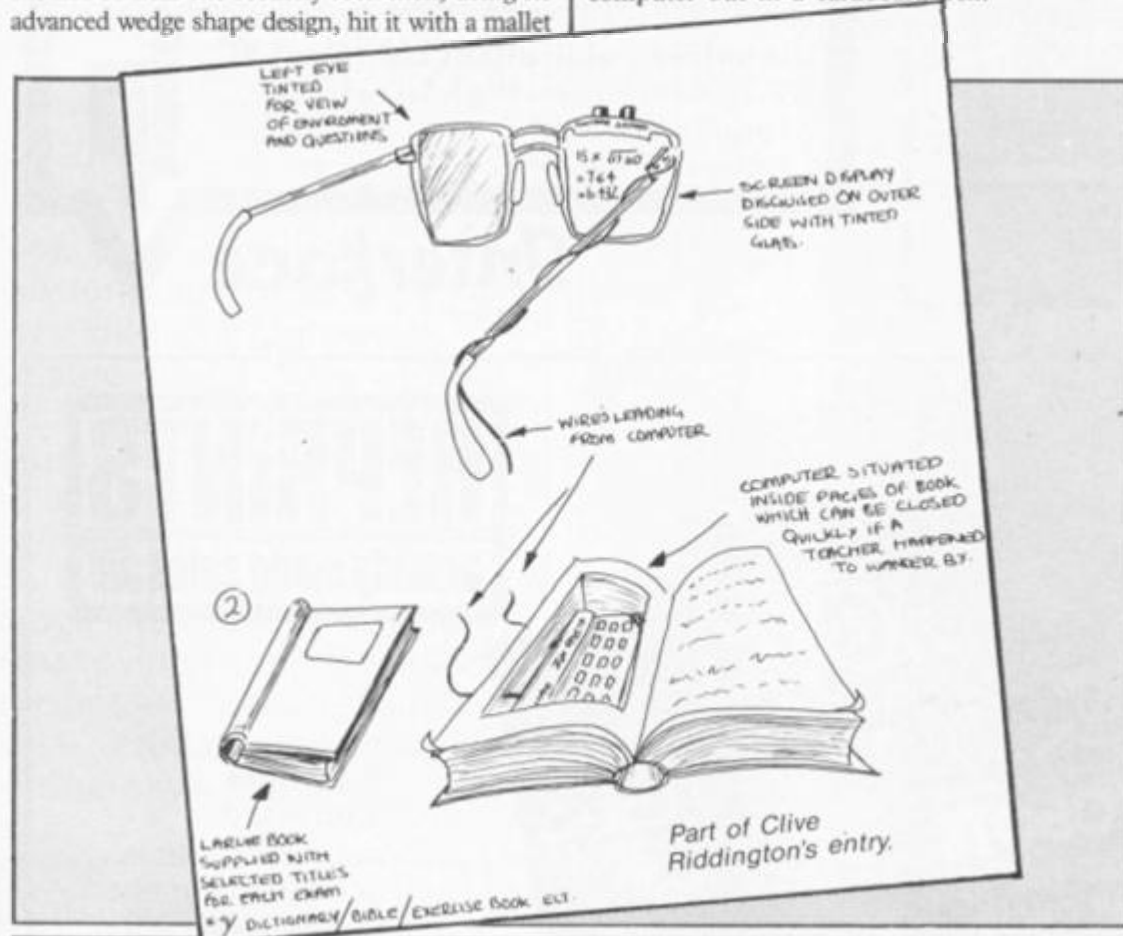 advanced wedge shape design, hit it with a mallet
LEFT EYE
TINTED
FOR VEIW
OF ENVIROMENT
AND QUESTIONS
15 x
=764
SCREEN DISPLAY
DISGUISED ON OUTER
SIDE WITH TINTED
GLASS.
WIRES LEADING
FROM COMPUTER
COMPUTER SITUATED
INSIDE PAGES OF BOOK
WHICH CAN BE CLOSED
QUICKLY IF A
TEACHER HAPPENED
TO WANDER BY.
2
LARGE BOOK
SUPPLIED WITH
SELECTED TITLES
FOR EACH EXAM
DICTIONARY/BIBLE/EXERCISE BOOK ECT.
Part of Clive
Riddington's entry.